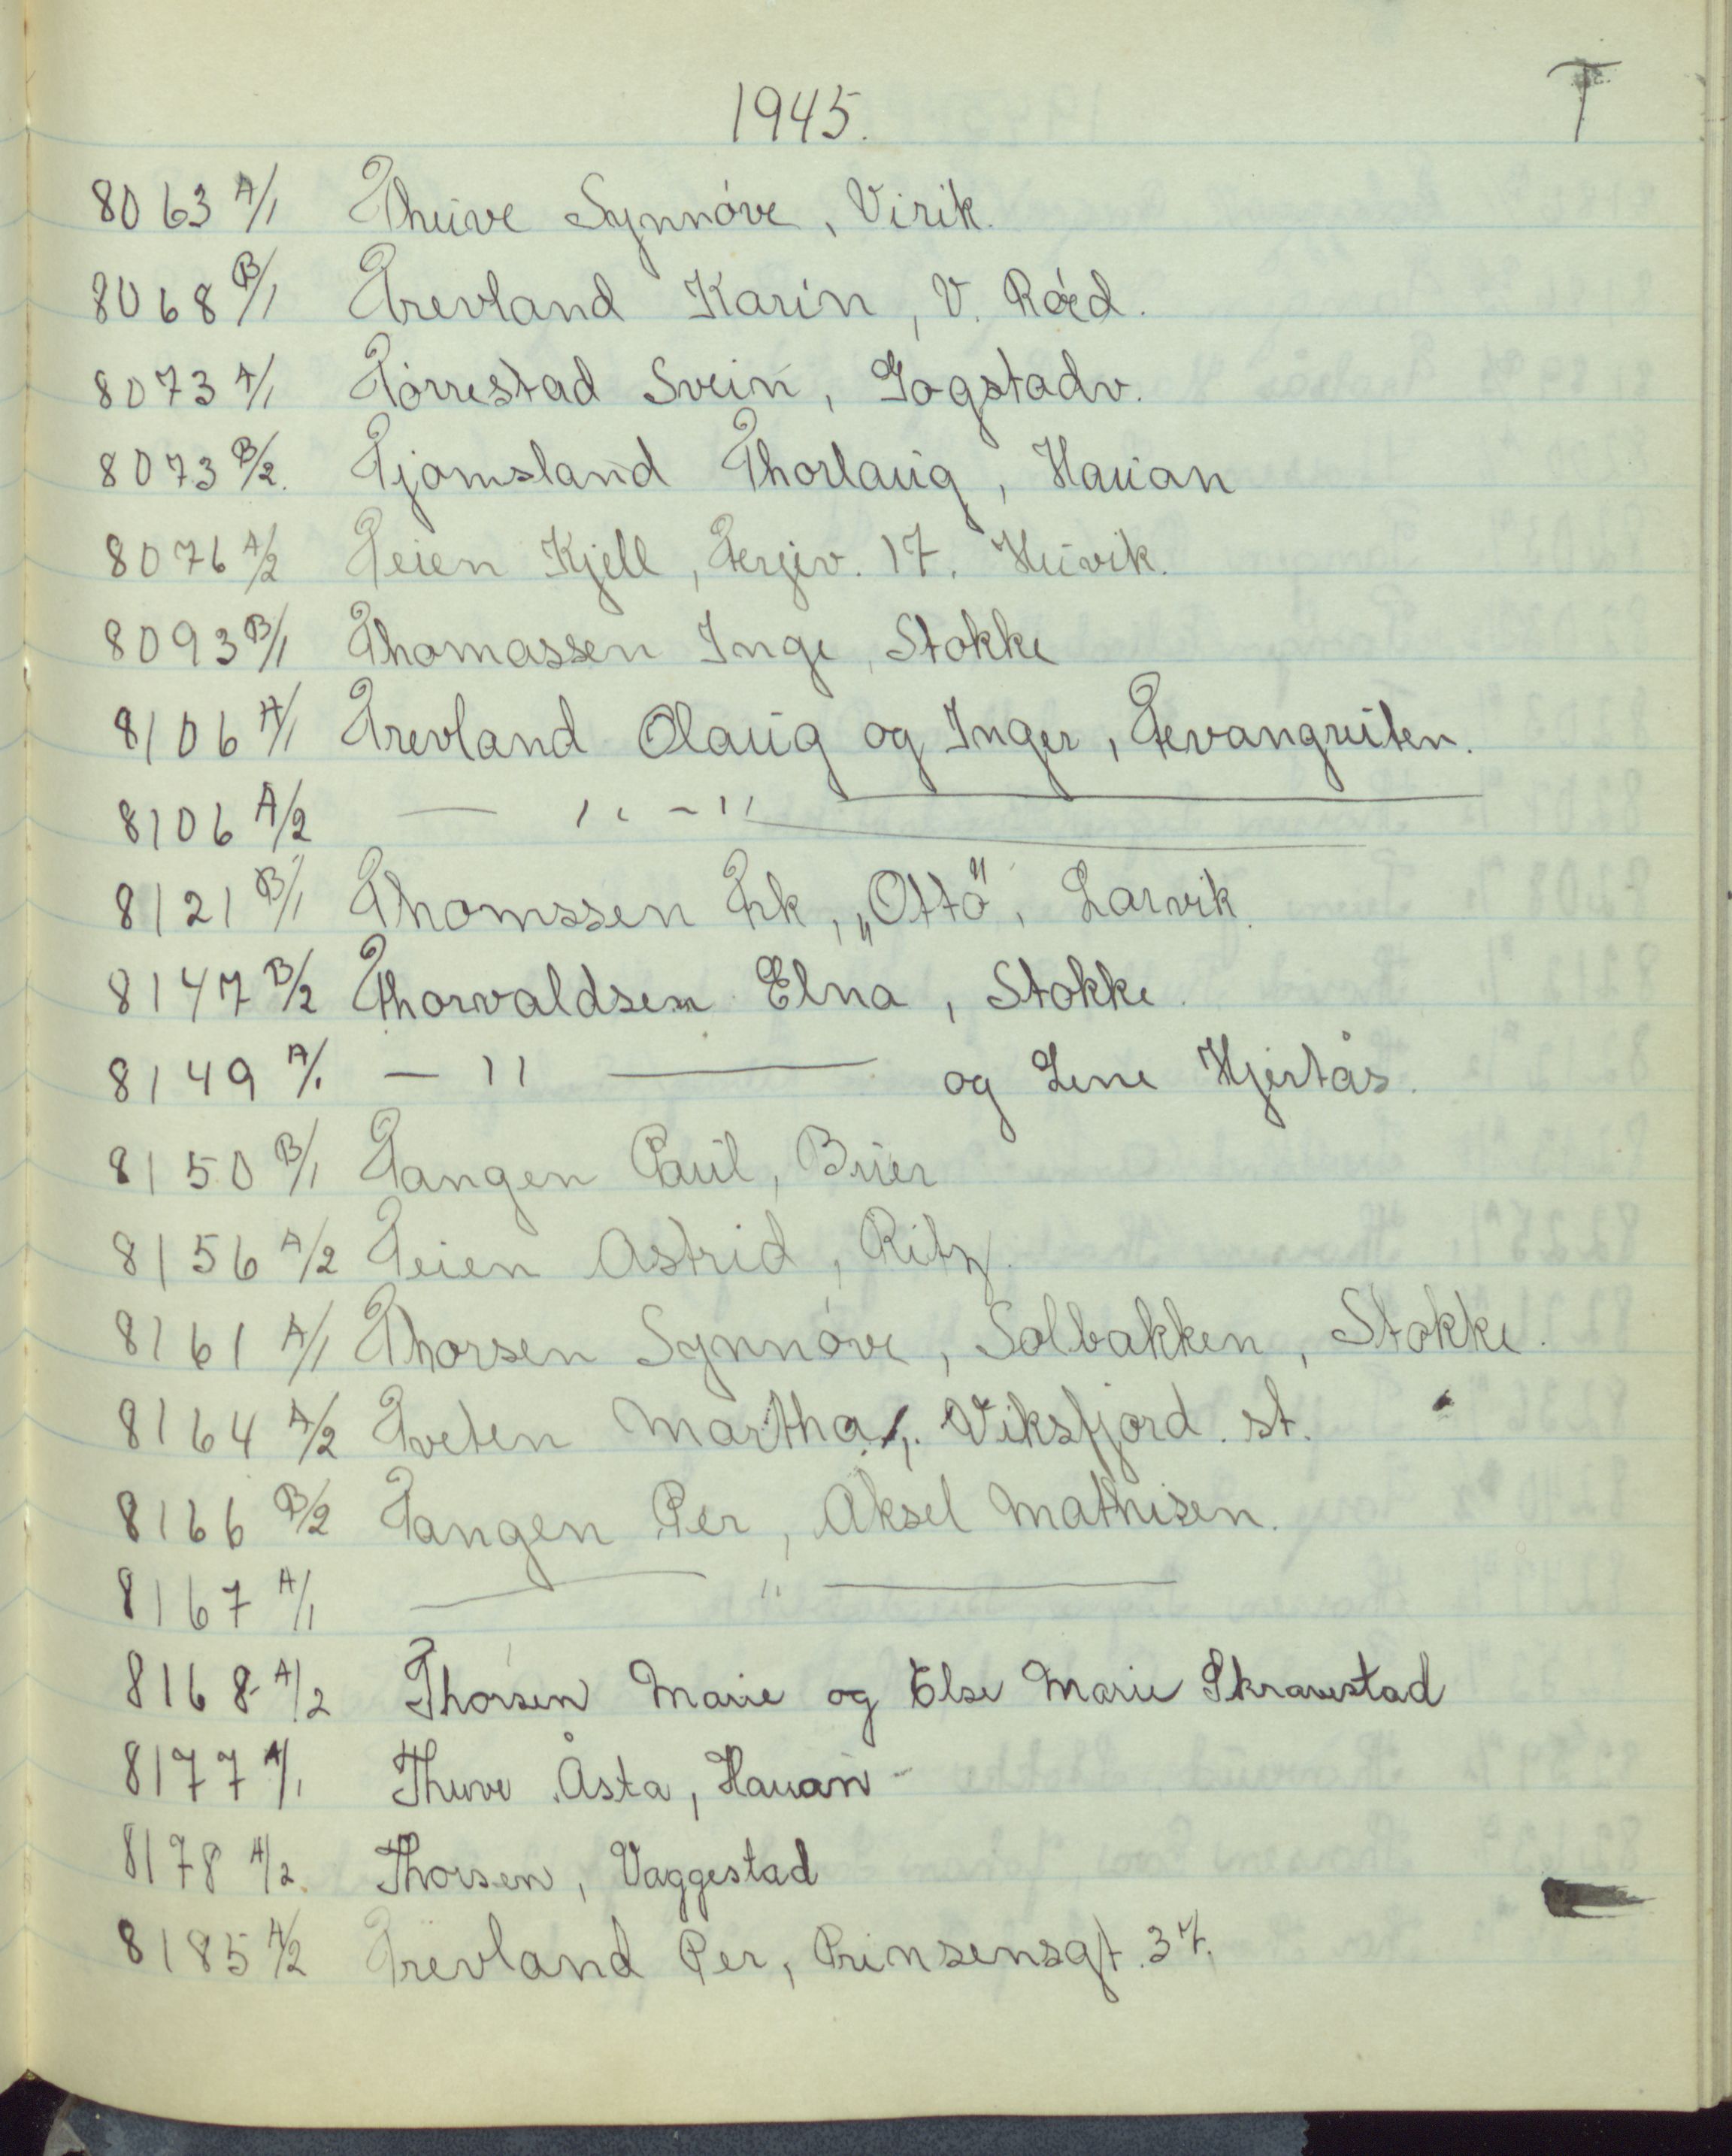 1945. T
8063 A/1 Thuve Synnóve, Virik.
8068 B/1 Trevland Karin, V. Röed.
8073 A/1 Tórrestad Svein, Gogstadv.
8073 B/2. Tjomsland Thorlaug, Hauan
8076 A/2 Teien Kjell, Terjev. 17. Huvik.
8093 B/1 Thomassen Inge, Stokke
8106 A/1 Trevland Olaug og Inger, Tevangruten.
8106 A/2 — " — "
8121 B/1 Thomssen Frk, „Otto", Larvik.
8147 B/2 Thorvaldsen Elna, Stokke.
8149 A/1 — " — og Lene Hjertås.
8150 B/1 Tangen Paul, Bruer
8156 A/2 Teien Astrid, Ritz.
8161 A/1 Thorsen Synnóve, Solbakken, Stokke.
8164 A/2 Tveten Martha, Viksfjord. st.
8166 B/2 Tangen Per, Aksel Mathisen.
8167 A/1 — " —
8168 A/2 Thorsen Marie og Else Marie Skravestad
8177 A/1 Thuve Åsta, Hauan
8178 A/2. Thorsen, Vaggestad
8185 A/2 Trevland Per, Prinsensgt. 37.